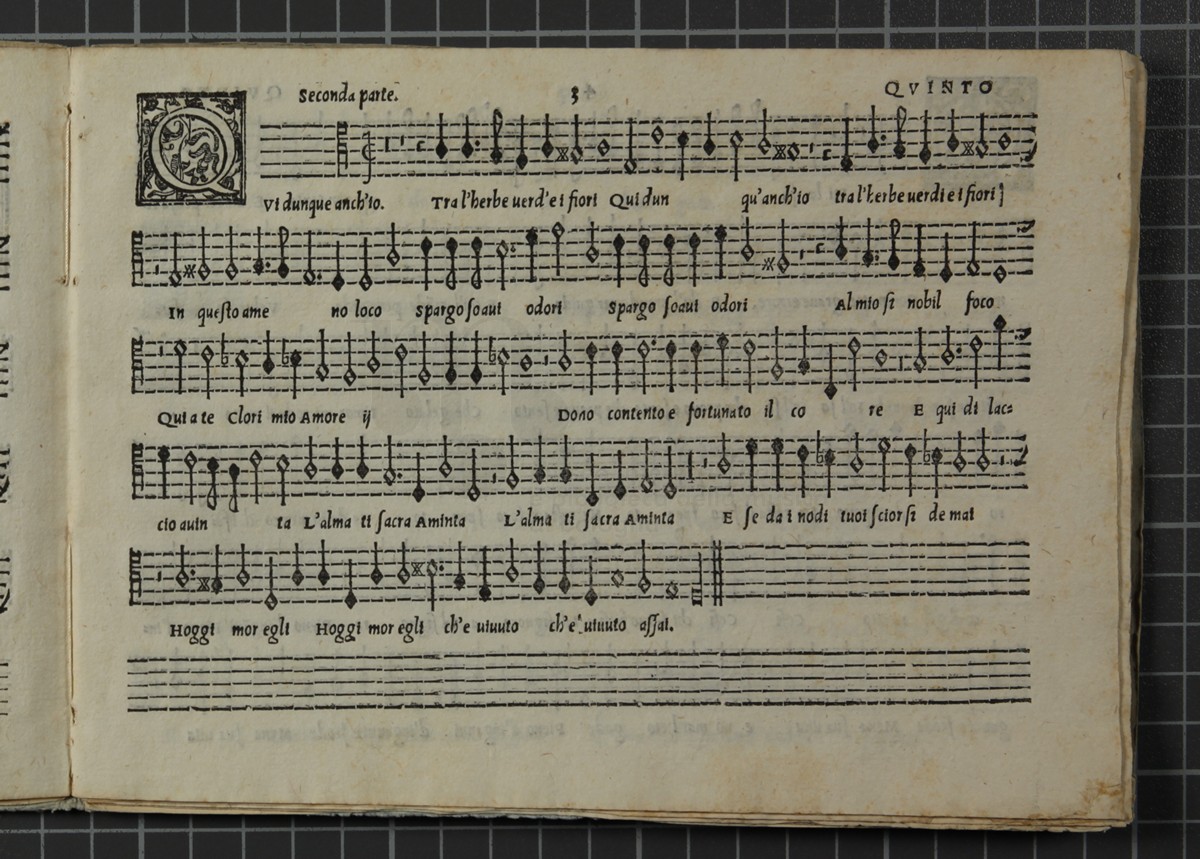 Seconda parte. 3 QVINTO
QVi dunque anch'io. Tra l'herbe uerd'e i fiori Qui dun qu'anch'io tra l'herbe uerdi e i fiori ij
In questo ame no loco spargo soaui odori Spargo soaui odori Al mio si nobil foco
Qui a te Clori mio Amore ij Dono contento e fortunato il co re E qui di lac=
cio auin ta L'alma ti sacra Aminta L'alma ti sacra Aminta E se da i nodi tuoi scior si de mai
Hoggi mor egli Hoggi mor egli ch'e uiuuto ch'e uiuuto assai.